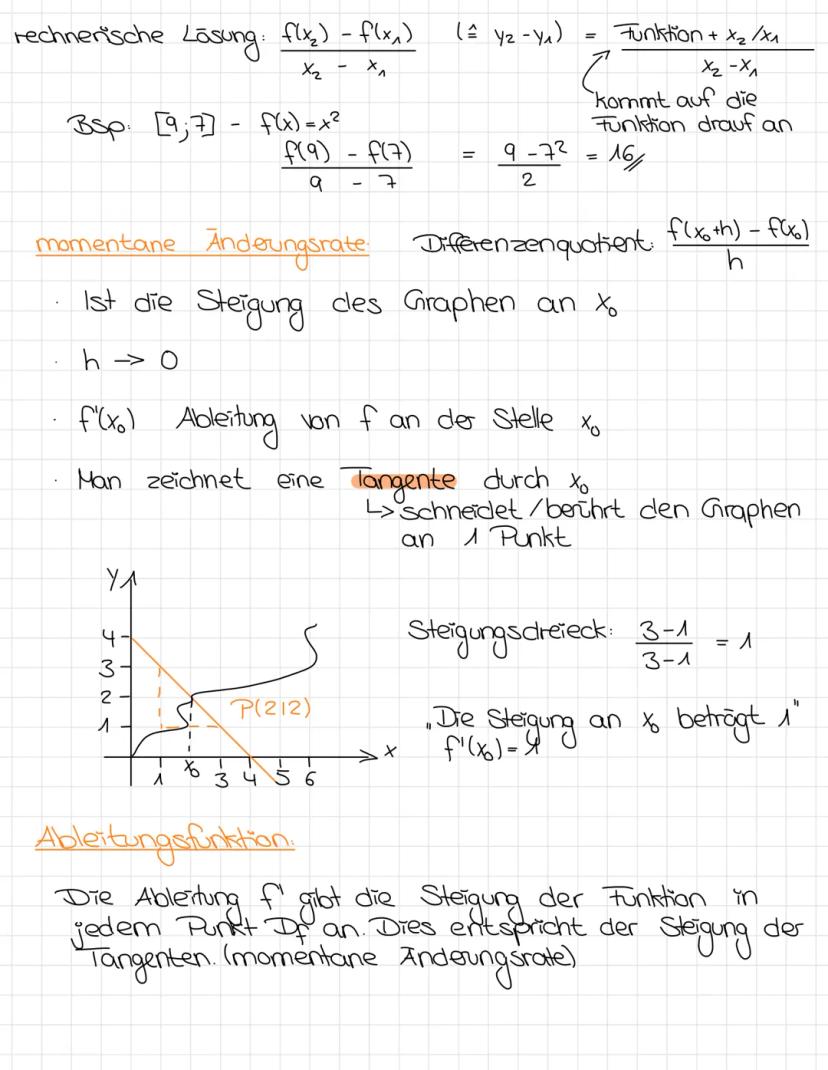 rechnerische Lösung: f(x₂) - f(x₁) / x₂ - x₁ (≙ y₂ - y₁) = Funktion + x₂/x₁ / x₂ - x₁
kommt auf die
Funktion drauf an
Bsp: [9;7] - f(x) = x²
f(9) - f(7) / 9 - 7 = 9 - 7² / 2 = 16
momentane Änderungsrate: Differenzenquotient: f(x₀+h) - f(x₀) / h
· Ist die Steigung des Graphen an x₀
· h → 0
· f'(x₀) Ableitung von f an der Stelle x₀
· Man zeichnet eine Tangente durch x₀
↳ schneidet / berührt den Graphen
an 1 Punkt
y
4
3
2
1
P(2|2)
x
1 x₀ 3 4 5 6
Steigungsdreieck: 3-1 / 3-1 = 1
„Die Steigung an x₀ beträgt 1"
f'(x₀) = 1
Ableitungsfunktion:
Die Ableitung f' gibt die Steigung der Funktion in
jedem Punkt Df an. Dies entspricht der Steigung der
Tangenten. (momentane Änderungsrate)